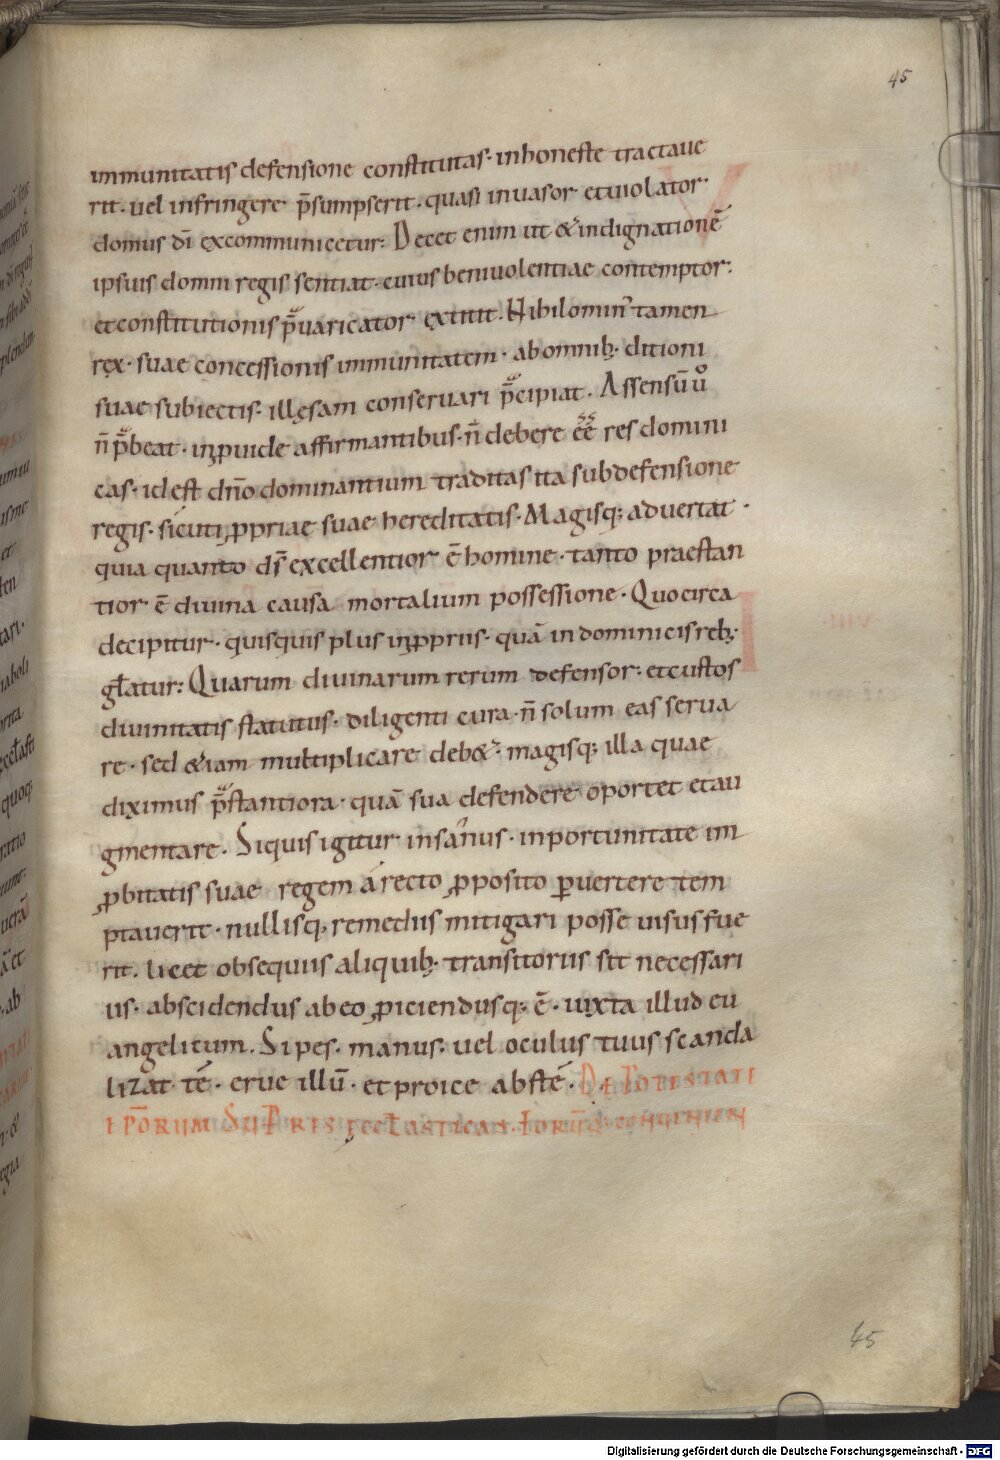 45
immunitatis defensione constitutas· inhoneste tractaue
rit· uel infringere p̄sumpserit· quasi inuasor et uiolator·
domus dī excommunicetur: Decet enim ut & indignationē
ipsius domni regis sentiat· cuius beniuolentiae contemptor:
et constitutionis p̄uaricator extitit· Nihilomin' tamen
rex· suae concessionis immunitatem· ab omnib; ditioni
suae subiectis· illęsam conseruari p̄cipiat· Assensū ů
n̄ p̄beat· inꝓuide affirmantibus· n̄ debere ēē res domini
cas· id est dn̄o dominantium traditas ita sub defensione
regis· sicuti ꝓpriae suae hereditatis· Magisq; aduertat·
quia quanto ds̄ excellentior ē homine· tanto praestan
tior ē diuina causa mortalium possessione· Quocirca
decipitur· quisquis plus in ꝓpriis· quā in dominicis reb;
gƚatur: Quarum diuinarum rerum defensor: et custos
diuinitatis statutus· diligenti cura· n̄ solum eas serua
re· sed &iam multiplicare deb&· magisq; illa quae
diximus p̄stantiora· quā sua defendere oportet et au
gmentare· Siquis igitur insanus· inportunitate im
ꝓbitatis suae regem á recto ꝓposito ꝑuertere tem
ptauerit· nullisq; remediis mitigari posse uisus fue
rit· licet obsequiis aliquib; transitoriis sit necessari
us· abscidendus ab eo ꝓiciendusq; ē· iuxta illud eu
angelicum· Si pes· manus· uel oculus tuus scanda
lizat té· erue illū· et proice abs té· DE POTESTATE
IPŌRUM
45
Digitalisierung gefördert durch die Deutsche Forschungsgemeinschaft - DFG